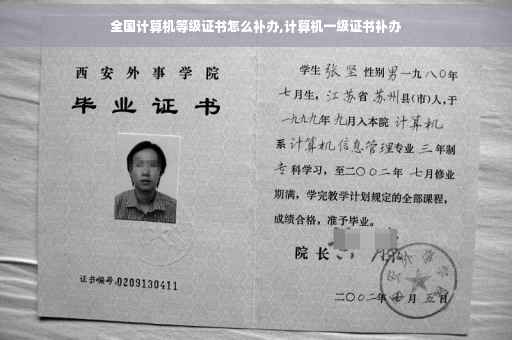 全国计算机等级证书怎么补办,计算机一级证书补办
西安外事学院
毕业证书
证书编号:0209130411
学生 张坚 性别 男 一九八〇年
七月生, 江苏省 苏州县(市)人,于
一九九九年 九月入本院 计算机
系 计算机信息管理专业 三 年制
专科学习,至二〇〇二年 七月修业
期满,学完教学计划规定的全部课程,
成绩合格,准予毕业。
院长
二〇〇二年 月 五日